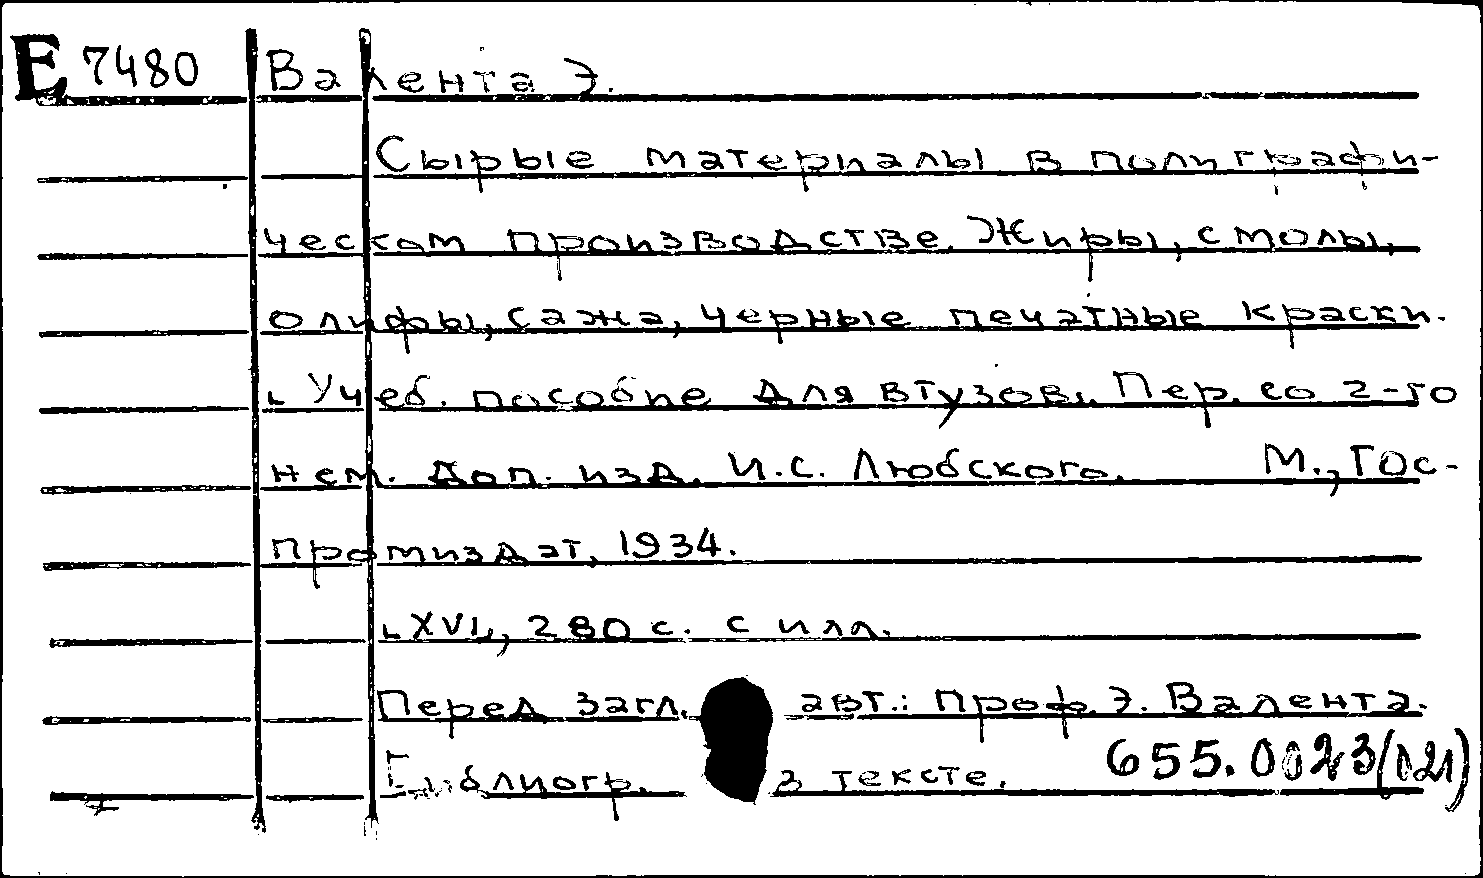 E 7480 Валента Э.
Сырые материалы в полиграфи-
ческом производстве. Жиры, смолы,
олифы, сажа, черные печатные краски.
[Учеб. пособие для втузов]. Пер. со 2-го
нем. доп. изд. И.С. Любского. М., Гос-
промиздат, 1934.
[XVI], 280 с. с илл.
Перед загл. авт.: Проф. Э. Валента.
Библиогр. в тексте. 655.0023(021)